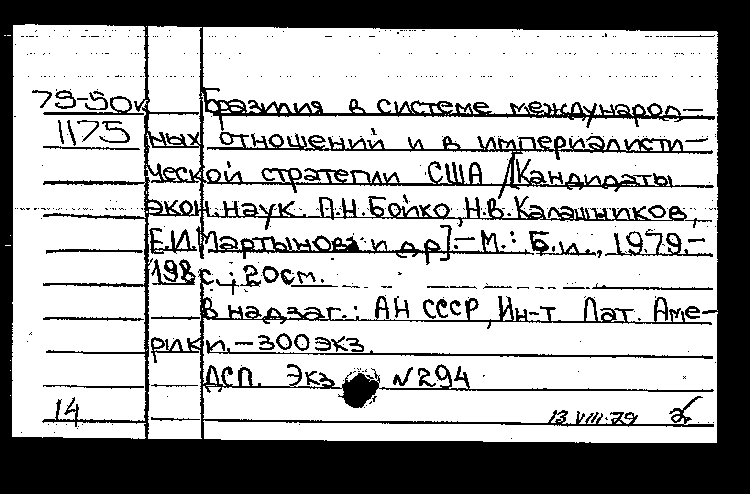 79-50к Бразилия в системе международ-
1175 ных отношений и в империалисти-
ческой стратегии США /[Кандидаты
экон. наук П.Н. Бойко, Н.В. Калашников,
Е.И. Мартынова и др]. - М.: Б.и., 1979. -
198с.; 20см.
В надзаг.: АН СССР, Ин-т Лат. Аме-
рики. - 300 экз.
ДСП. Экз № 294
14 13 VIII-79